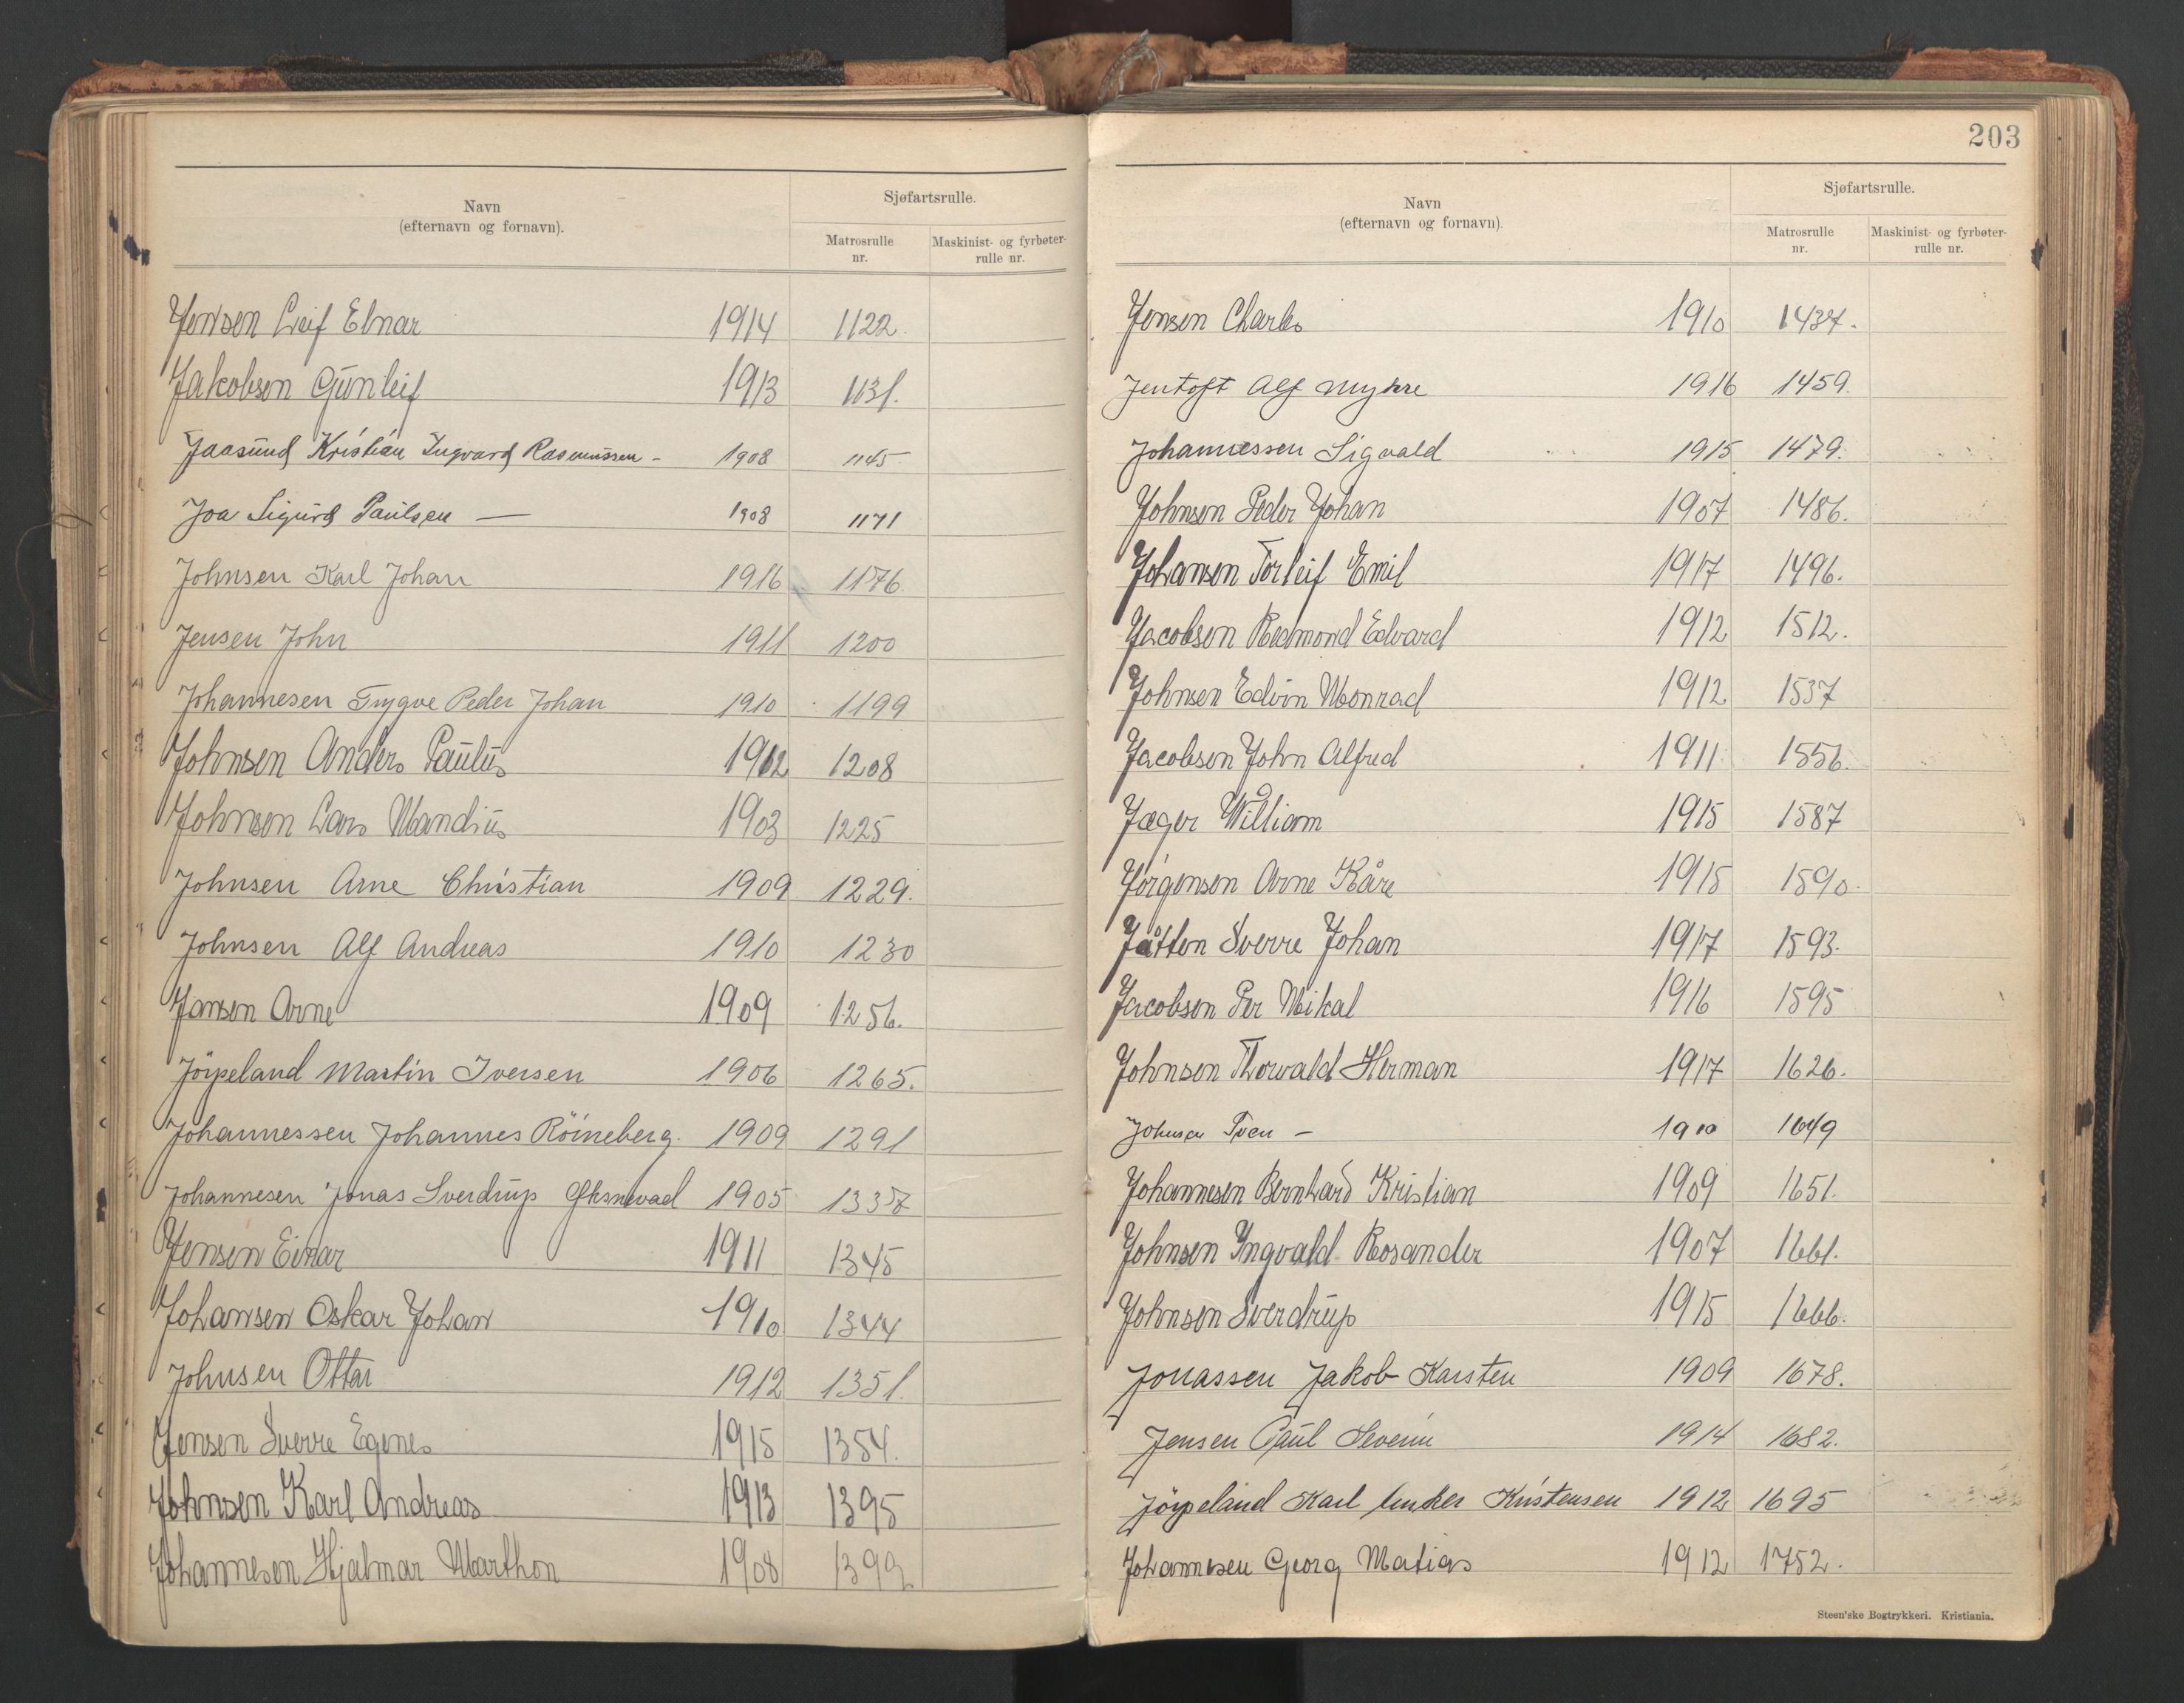 Navn
(efternavn og fornavn).
Sjøfartsrulle.
Matrosrulle nr.
Maskinist- og fyrbøter-rulle nr.
Jensen Leif Einar 1914 1122.
Jakobsen Gunleif 1913 1131.
Jaasund Kristian Ingvard Rasmussen - 1908 1145
Joa Sigurd Paulsen — 1908 1171
Johnsen Karl Johan 1916 1176.
Jensen John 1911 1200
Johannesen Trygve Peder Johan 1910 1199
Johnsen Anders Paulus 1912 1208
Johnsen Lars Mandius 1903 1225
Johnsen Arne Christian 1909 1229.
Johnsen Alf Andreas 1910 1230
Jansen Arne 1909 1256.
Jörpeland Martin Iversen 1906 1265.
Johannessen Johannes Röineberg. 1909 1291
Johannesen Jonas Sverdrup 1905 1337
Jensen Einar 1911 1345
Johansen Oskar Johan 1910 1344
Johnsen Ottar 1912 1351.
Jensen Sverre Egenes 1915 1354.
Johnsen Karl Andreas 1913 1395
Johannesen Hjalmar Marthon 1908 1399
203
Navn
(efternavn og fornavn).
Sjøfartsrulle.
Matrosrulle nr.
Maskinist- og fyrbøter-rulle nr.
Jensen Charles 1910 1434.
Jentoft Alf Myhre 1916 1459.
Johannessen Sigvald 1915 1479.
Johnsen Peder Johan 1907 1486.
Johansen Torleif Emil 1917 1496.
Jacobsen Redmond Edvard 1912 1512.
Johnsen Edvin Monrad 1912 1537
Jacobsen John Alfred 1911 1556.
Jæger William 1915 1587
Jörgensen Arne Kåre 1915 1590.
Jåtten Sverre Johan 1917 1593.
Jacobsen Per Mikal 1916 1595
Johnsen Thorvald Herman 1917 1626.
Johnsen - 1910 1649
Johannesen Bernhard Kristian 1909 1651.
Johnsen Yngvald Rosander 1907 1661.
Johnsen Sverdrup 1915 1666.
Jonassen Jakob Karsten 1909 1678.
Jensen Paul Severin 1914 1682.
Jörpeland Karl Kristensen 1912 1695
Johannesen Georg Matias 1912 1752.
Steen'ske Bogtrykkeri. Kristiania.